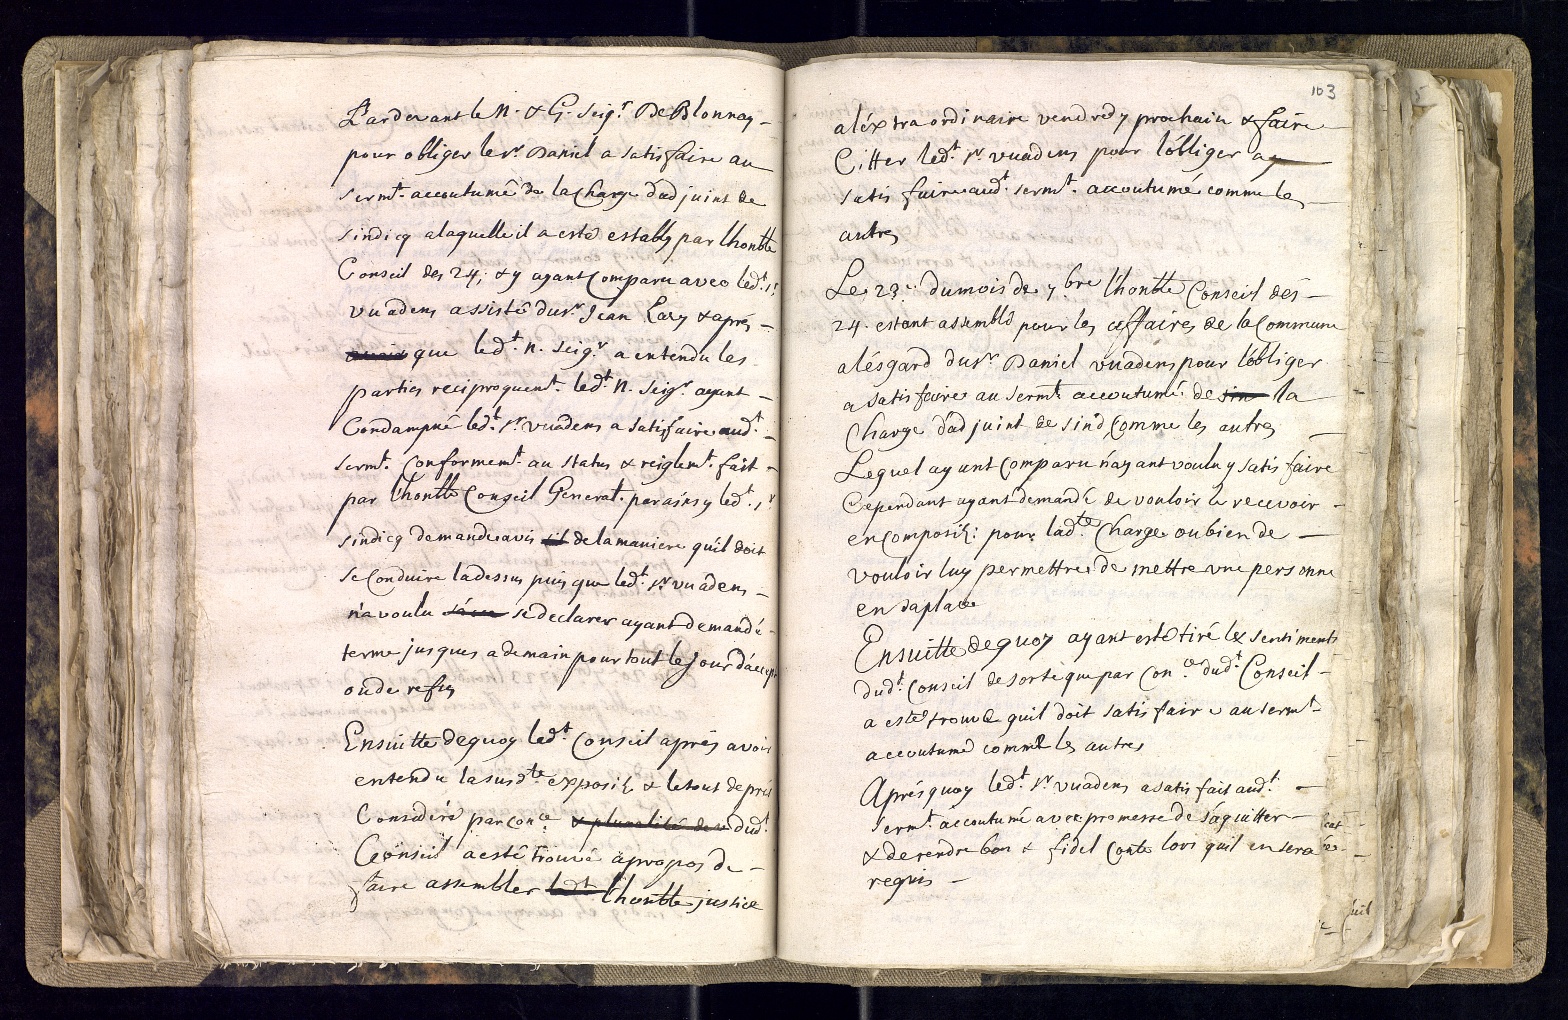 Pardevant le N. & G. Seigr. De Blonnay
pour obliger le Sr. Daniel a satisfaire au
sermt. accoutumé de la Charge dadjoint de
sindicq a laquelle il a esté establÿ par lhonble
Conseil des 24, & y ayant Comparu avec ledt. Sr
vuadens assisté du Sr. Jean Lary & aprés
que ledt. N. Seigr. a entendu les
parties reciproquemt. ledt. N. Seigr. ayant
Condampné ledt. Sr vuadens a satisfaire audt.
sermt. Conformemt. au status & reiglemt. fait
par lhonble Conseil General. par ainsy ledt. Sr
sindicq demande avis de la maniere quil doit
se Conduire ladessus puis que ledt. Sr vuadens
n'a voulu se declarer ayant demandé
terme jusques a demain pour tout le Jour d'accept
ou de refus
Ensuitte dequoy ledt. Conseil aprés avoir
entendu la susdte. exposit & le tout de prés
Consideré par Conce & pluralité de dudt.
Conseil a esté trouvé apropos de
faire assembler ledt. lhonble justice
103
aléxtraordinaire vendredy prochain & faire
Citter ledt. Sr vuadens pour lobliger a y
satisfaire audt. sermt. accoutumé comme les
autres
Le 23e. du mois de 7bre lhonble Conseil dés
24. estant assemblé pour les affaires de la Commune
alésgard du Sr Daniel vuadens pour lobliger
a satisfaire au sermt. accoutumé de sin la
Charge dadjoint de sind Comme les autres
Lequel ayant Comparu n'ayant voulu y satisfaire
Cependant ayant demandé de vouloir le recevoir
en Composit: pour ladte. Charge ou bien de
vouloir luy permettre de mettre une personne
en sa place
Ensuitte dequoy ayant esté tiré les sentiments
dudt. Conseil de sorte que par Conce. dudt. Conseil
a esté trouvé quil doit satisfaire au sermt.
accoutumé comme les autres
Aprés quoy ledt. Sr vuadens a satisfait audt.
sermt. accoutumé avec promesse de s'aquitter
& de rendre bon & fidel Conte lors quil en sera
requis